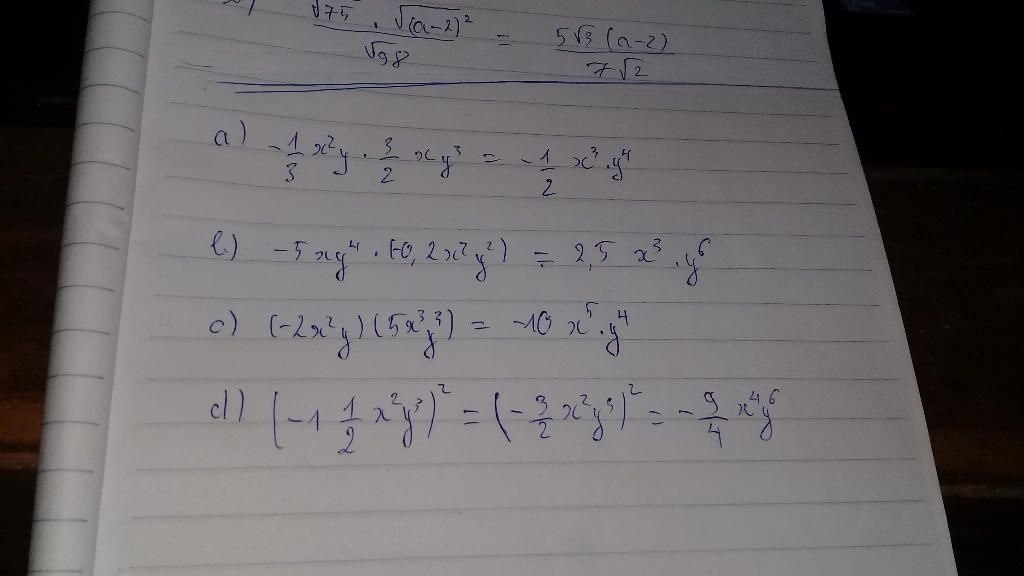 √75 · √(a-2)² / √98 = 5√3 (a-2) / 7√2
a) -1/3 x²y · 3/2 xy³ = -1/2 x³·y⁴
b) -5xy⁴ · (-0,2x²y²) = 2,5 x³·y⁶
c) (-2x²y)(5x³y³) = -10 x⁵·y⁴
d) (-1 1/2 x²y³)² = (-3/2 x²y³)² = -9/4 x⁴y⁶